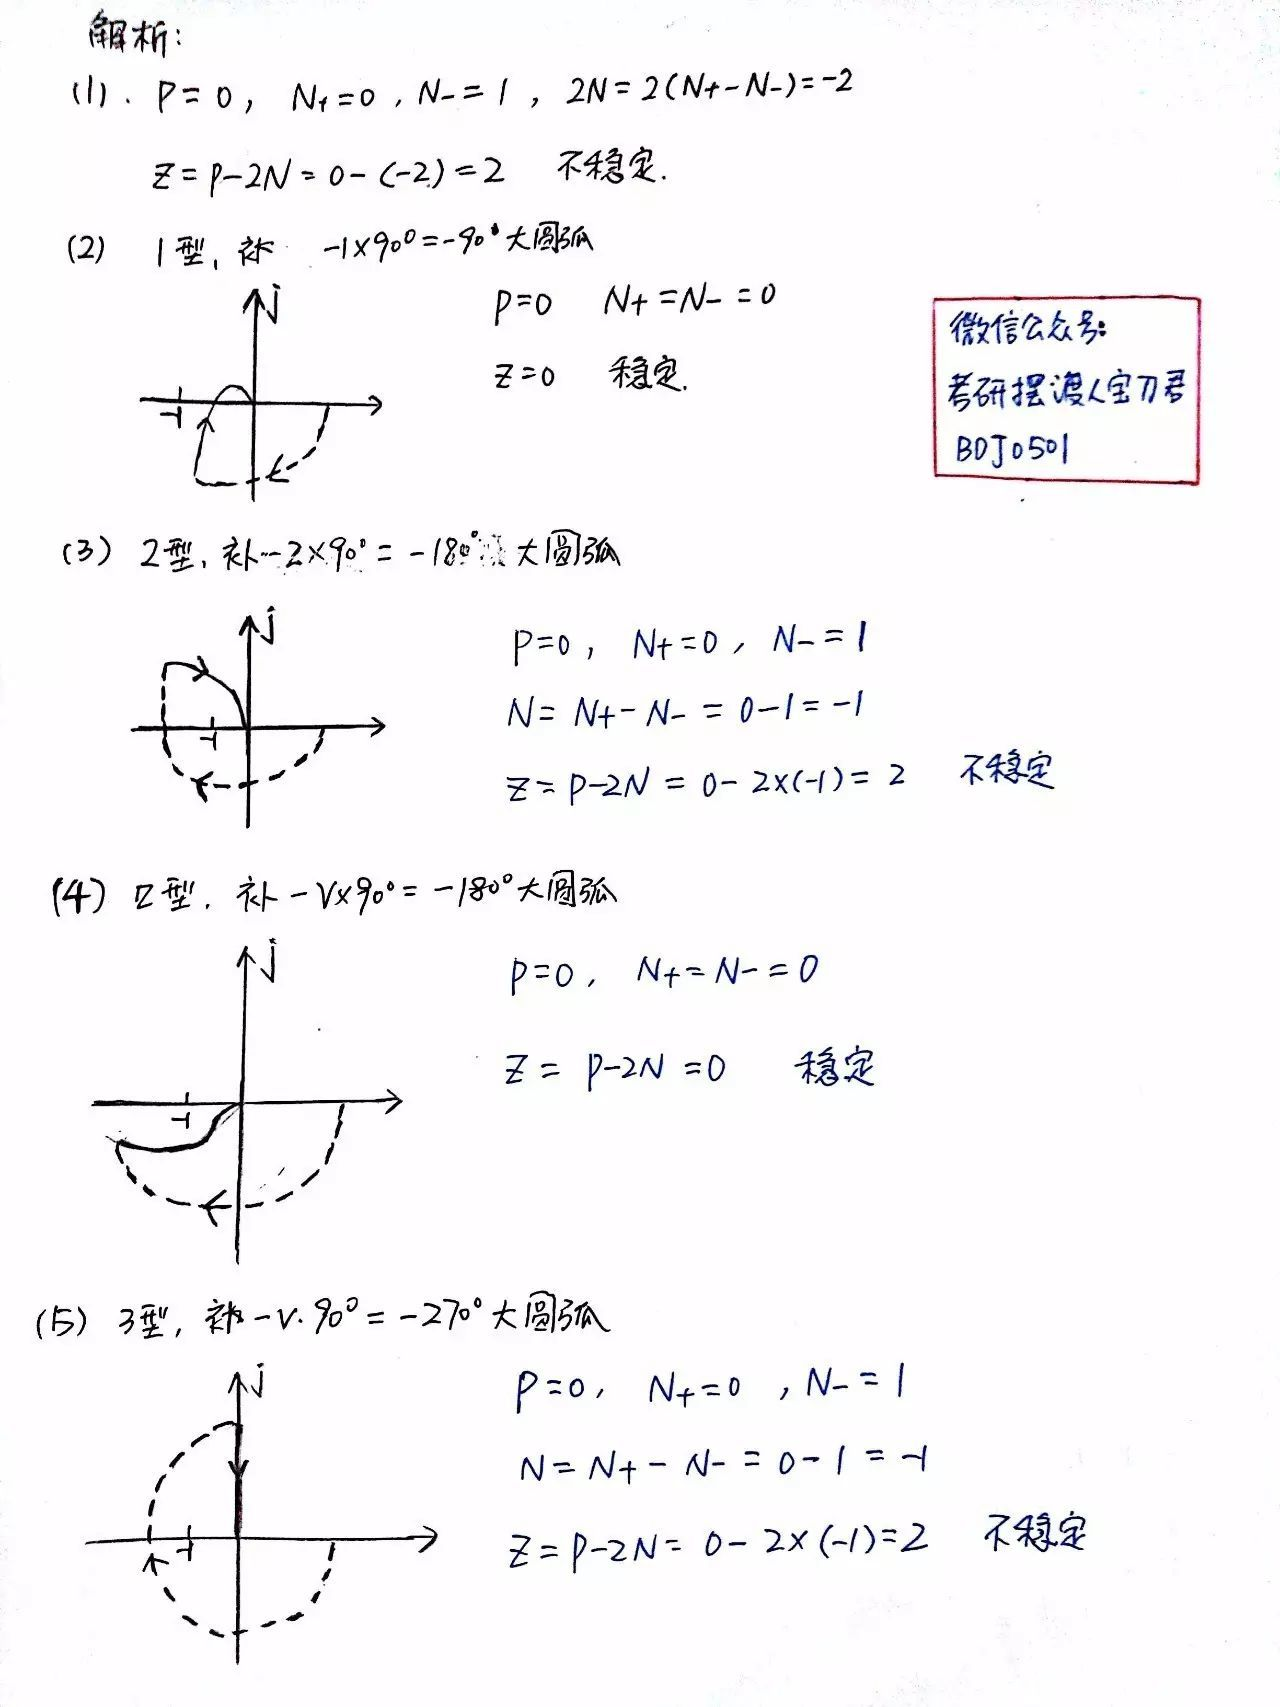 解析:
(1). P=0, N+=0, N-=1, 2N=2(N+-N-)=-2
Z=P-2N=0-(-2)=2 不稳定.
(2) 1型, 补 -1×90°=-90°大圆弧
j
P=0 N+=N-=0
-1
Z=0 稳定.
微信公众号:
考研摆渡人宝刀君
BDJ0501
(3) 2型, 补-2×90°=-180° 大圆弧
j
P=0, N+=0, N-=1
-1
N=N+-N-=0-1=-1
Z=P-2N=0-2×(-1)=2 不稳定
(4) 2型. 补-V×90°=-180°大圆弧
j
P=0, N+=N-=0
-1
Z=P-2N=0 稳定
(5) 3型, 补-V·90°=-270°大圆弧
j
P=0, N+=0, N-=1
N=N+-N-=0-1=-1
-1
Z=P-2N=0-2×(-1)=2 不稳定